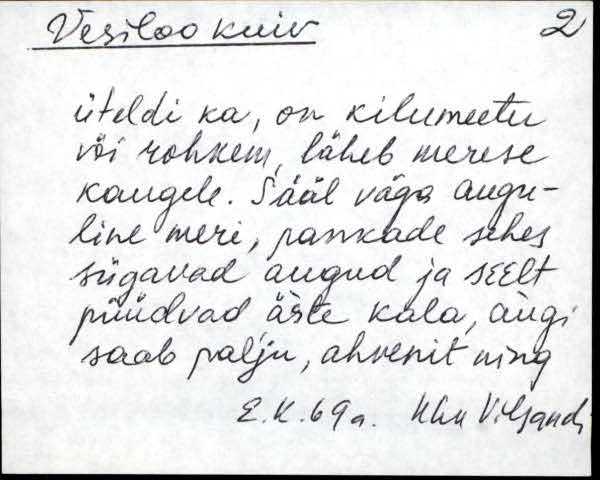 Vesiloo kuiv 2
üteldi ka, on kilumeetu
või rohkem, läheb merese
kaugele. Sääl väga augu-
line meri, pankade sehes
sügavad augud ja seelt
püüdvad äste kala, äugi
saab palju, ahvenit ning
E.K. 69a. Khk Viljandi